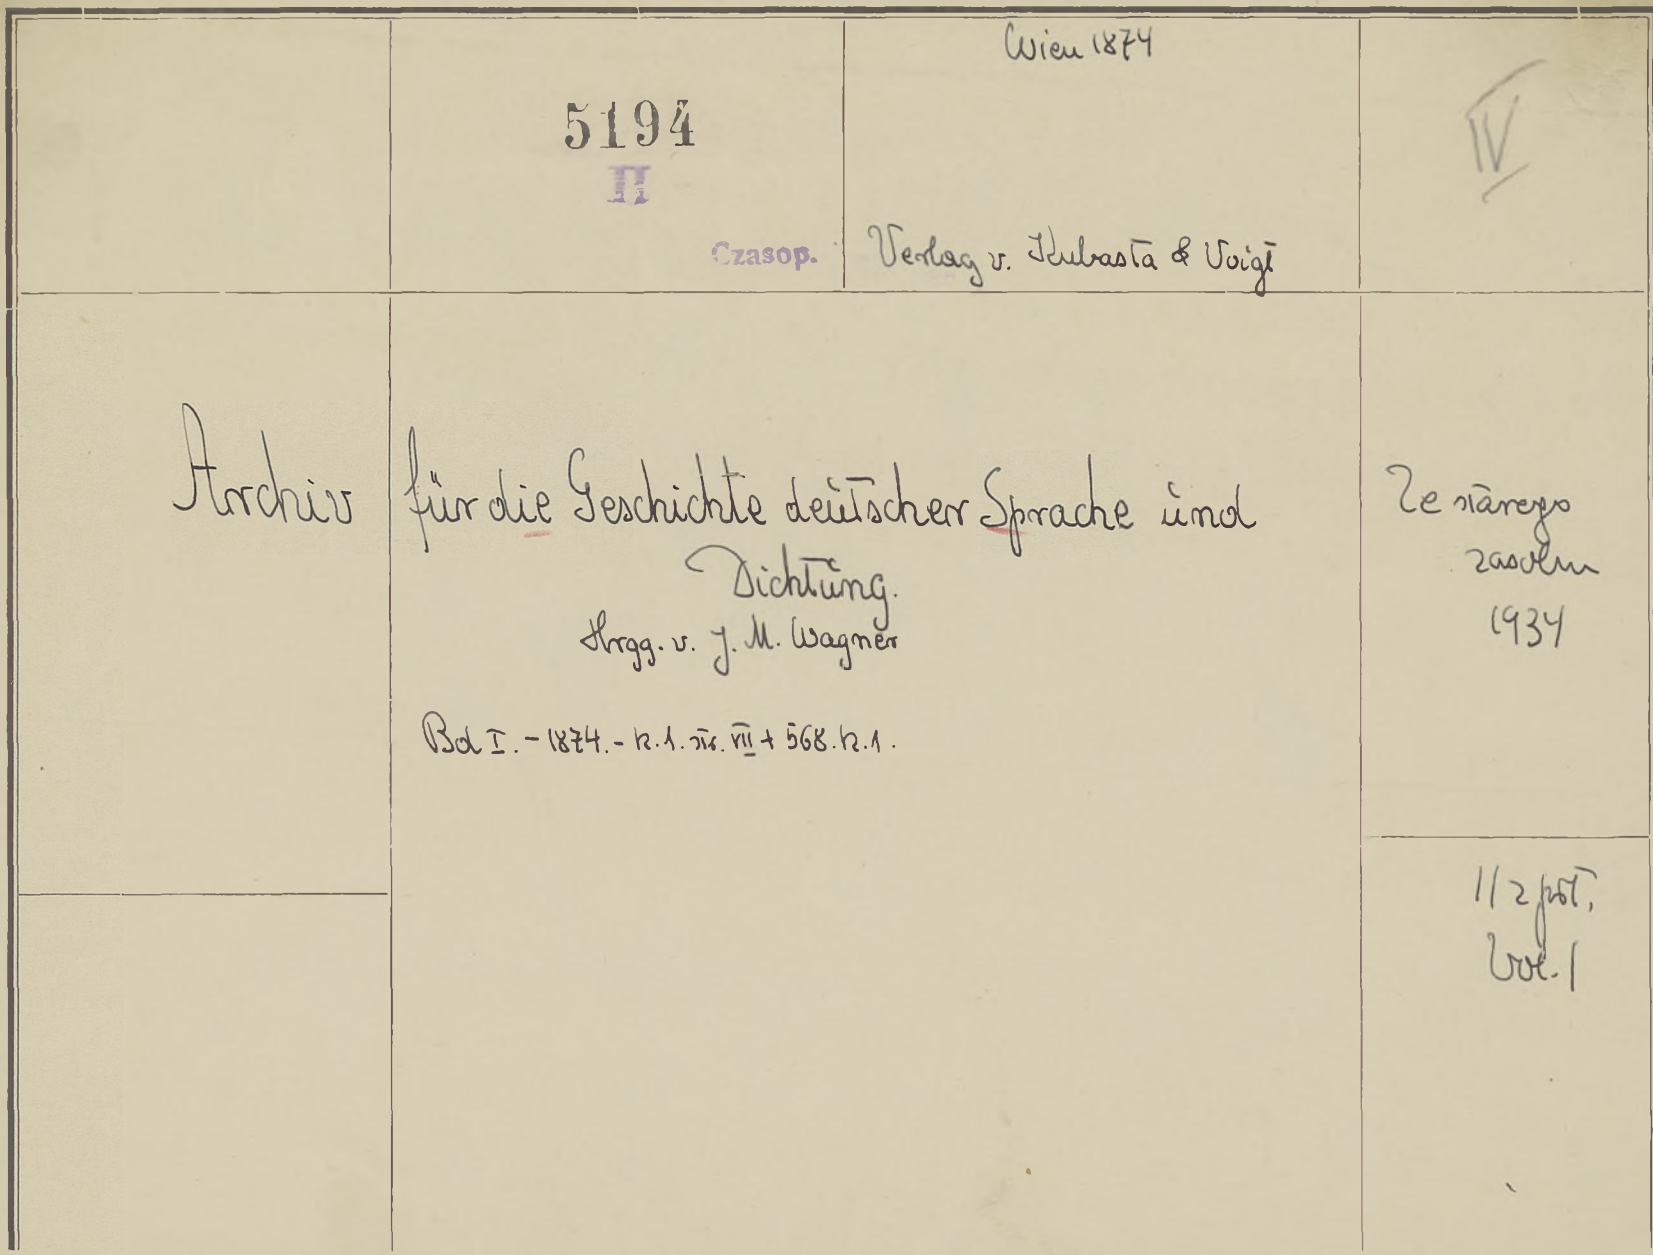 Wien 1874
IV
5194
II
Czasop.
Verlag v. Kubasta & Voigt
Archiv für die Geschichte deutscher Sprache und
Dichtung.
Hrgg. v. J. M. Wagner
Bd I. - 1874. - k. 1. str. VII + 568. k. 1.
Ze starego
zasobu
1934
1/2 pół.
Vol. 1